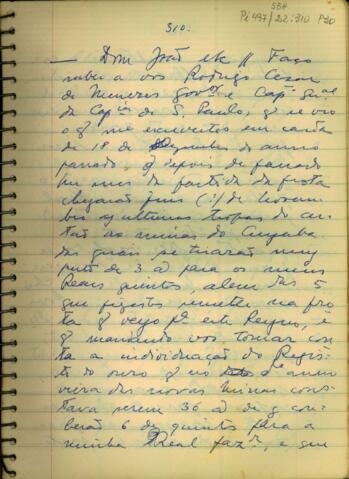 310.
SBH
Pi 497/22:310 P20
— Dom João etc // Faço
saber a vos Rodrigo Cezar
de Menezes Govor e Capm Gnal
da Capnia de S. Paulo, q se vio
o q me escrevestes em carta
de 18 de Dezembro do anno
passado, q depois de passado
hum mes da partida da frota
chegarão fins (?) de Novem
bro as ultimas tropas do cer
tão nas minas do Cuyaba
das quais se tirarão mais
perto de 3 a) para os meus
Reais quintos, alem das 5
que fizestes remeter na fro
ta q veyo pa este Reyno, e
q mandando vos tomar con
ta a individuação do Regis
to do ouro q no do anno
viera das novas minas cons
tava serem 36 a) de q
berão 6 de quintos para a
minha Real fazda, e que